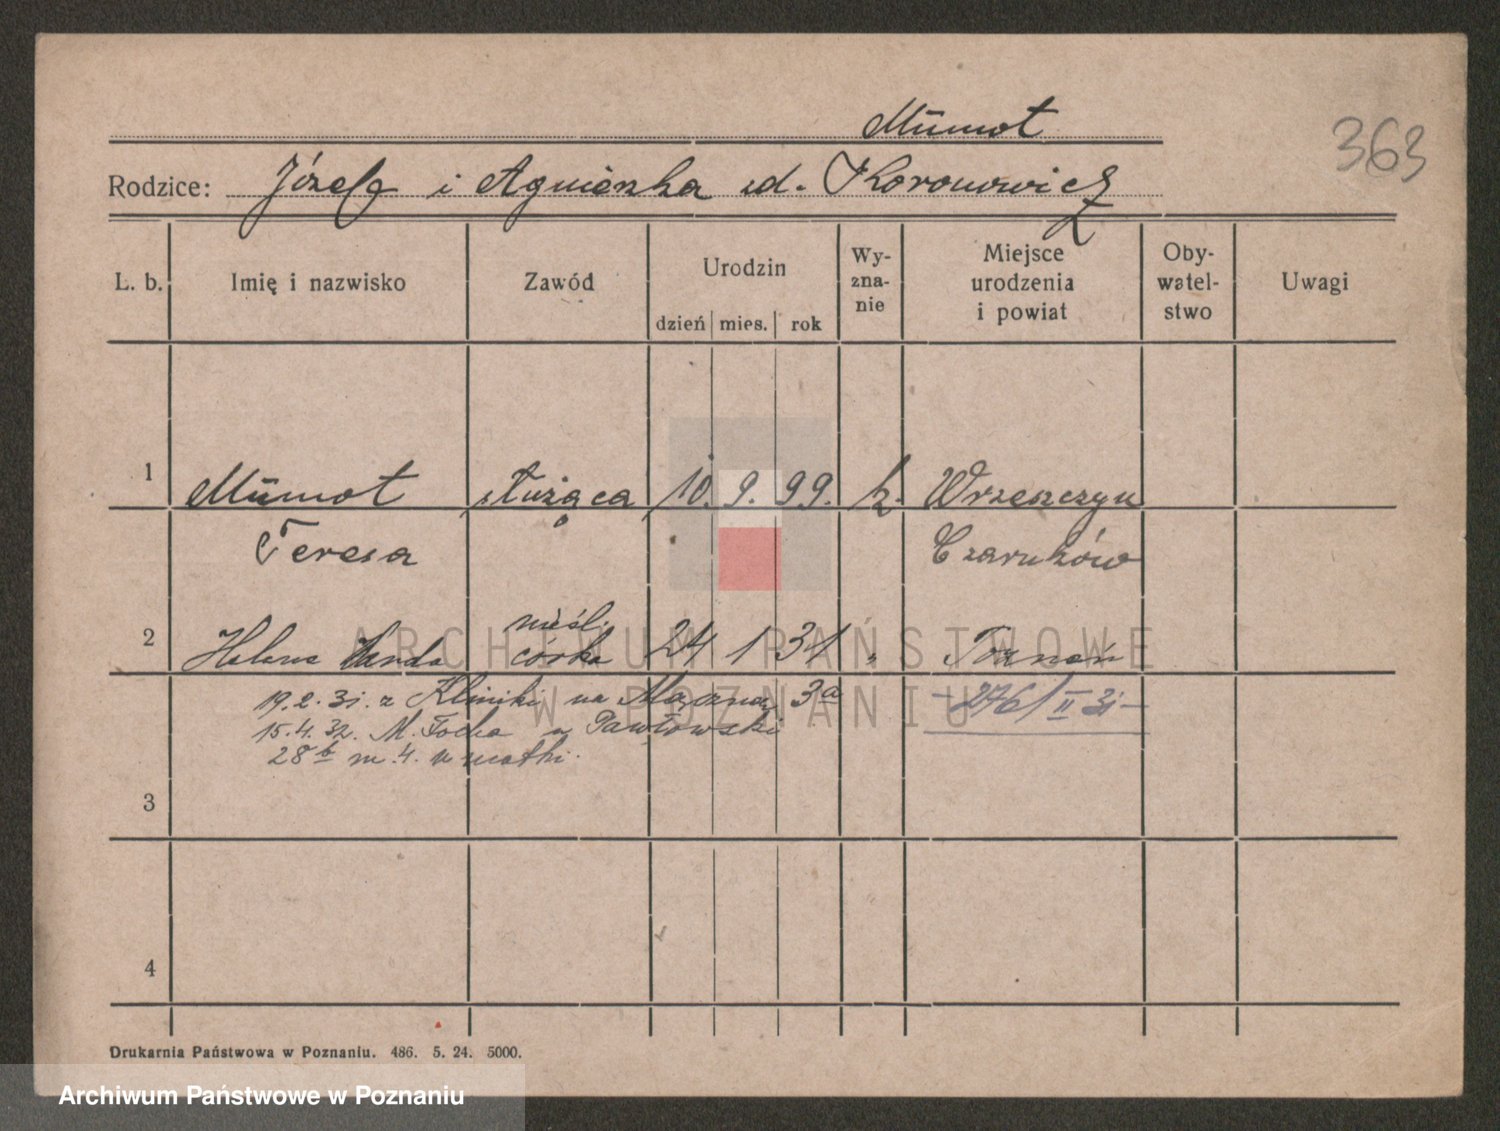 Mūmot
363
Rodzice: Józef i Agnieszka zd. Koronowicz
L. b. Imię i nazwisko Zawód Urodzin dzień mies. rok Wy-zna-nie Miejsce urodzenia i powiat Oby-watel-stwo Uwagi
1 Mūmot służąca 10. 9. 99. k. Wrzeszczyn
Teresa Czarnków
nieśl.
2 Helena Wanda córka 24 1 31 " Poznań
19.2.31. z Kliniki na Mączną 3a 276/II 31
15.4.32. M. Focha u Pawłowski
28b m. 4. u matki.
3
4
Drukarnia Państwowa w Poznaniu. 486. 5. 24. 5000.
ARCHIWUM PAŃSTWOWE
W POZNANIU
Archiwum Państwowe w Poznaniu